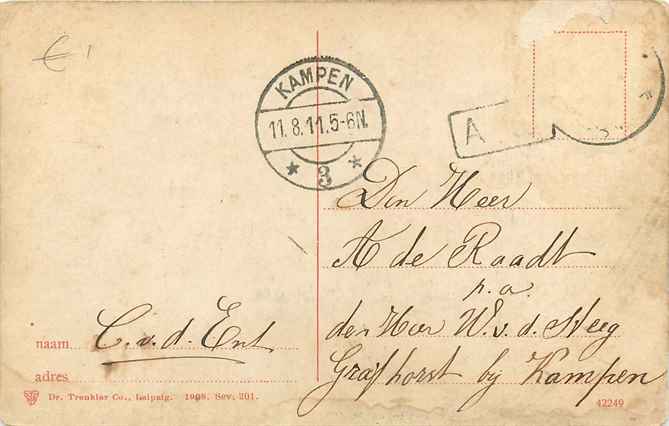 € 1
KAMPEN
11.8.11.5-6N.
* 3 *
A
Den Heer
A de Raadt
p.a.
den Heer W.v.d. Steeg
Grafhorst bij Kampen
naam C.v.d. Ent
adres
Dr. Trenkler Co., Leipzig. 1908. Sev. 201.
42249